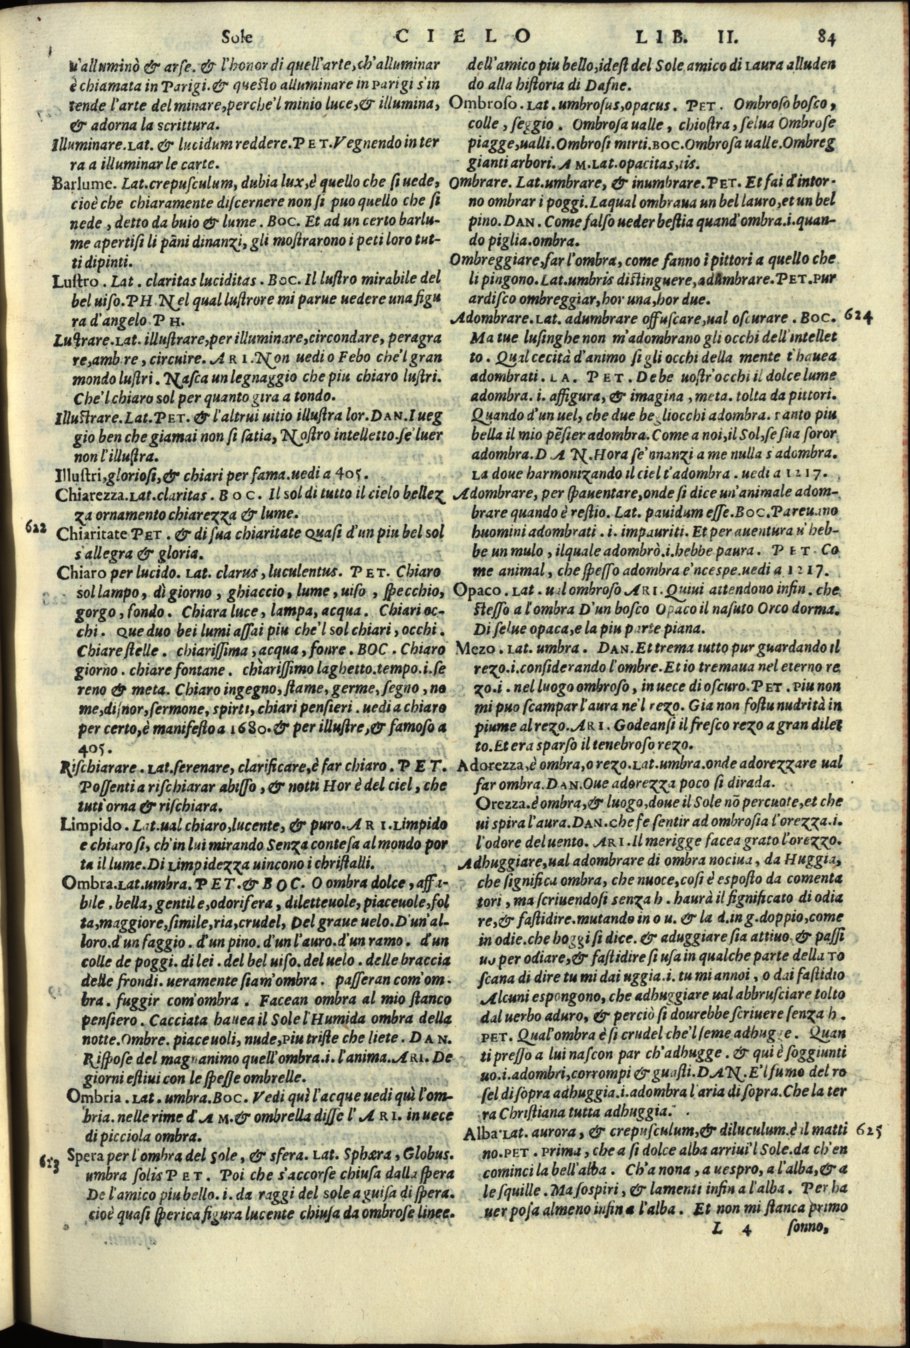 Sole CIELO LIB. II. 84
u'alluminò & arse. & l'honor di quell'arte, ch'alluminar
è chiamata in Parigi. & questo alluminare in Parigi s'in
tende l'arte del minare, perche'l minio luce, & illumina,
& adorna la scrittura.
Illuminare. Lat. & lucidum reddere. PET. Vegnendo in ter
ra a illuminar le carte.
Barlume. Lat. crepusculum, dubia lux, è quello che si uede,
cioè che chiaramente discernere non si puo quello che si
uede, detto da buio & lume. BOC. Et ad un certo barlu-
me apertisi li pãni dinanzi, gli mostrarono i peti loro tut-
ti dipinti.
Lustro. Lat. claritas luciditas. BOC. Il lustro mirabile del
bel uiso. PH. Nel qual lustrore mi parue uedere una figu
ra d'angelo PH.
Lustrare. Lat. illustrare, per illuminare, circondare, peragra
re, ambire, circuire. ARI. Non uedi o Febo che'l gran
mondo lustri. Nasca un legnaggio che piu chiaro lustri.
Che'l chiaro sol per quanto gira a tondo.
Illustrare. Lat. PET. & l'altrui uitio illustra lor. DAN. I ueg
gio ben che giamai non si satia, Nostro intelletto. se'l uer
non l'illustra.
Illustri, gloriosi, & chiari per fama. uedi a 405.
Chiarezza. Lat. claritas. BOC. Il sol di tutto il cielo bellez
za ornamento chiarezza & lume.
622 Chiaritate PET. & di sua chiaritate Quasi d'un piu bel sol
s'allegra & gloria.
Chiaro per lucido. Lat. clarus, luculentus. PET. Chiaro
sol lampo, dì giorno, ghiaccio, lume, uiso, specchio,
gorgo, fondo. Chiara luce, lampa, acqua. Chiari oc-
chi. Que duo bei lumi assai piu che'l sol chiari, occhi.
Chiare stelle. chiarissima, acqua, fonte. BOC. Chiaro
giorno. chiare fontane. chiarissimo laghetto. tempo. i. se
reno & meta. Chiaro ingegno, stame, germe, segno, no
me, disnor, sermone, spirti, chiari pensieri. uedi a chiaro
per certo, è manifesto a 1680. & per illustre, & famoso a
405.
Rischiarare. Lat. serenare, clarificare, è far chiaro. PET.
Possenti a rischiarar abisso, & notti Hor è del ciel, che
tutt'orna & rischiara.
Limpido. Lat. ual chiaro, lucente, & puro. ARI. Limpido
e chiaro sì, ch'in lui mirando Senza contesa al mondo por
ta il lume. Di Limpidezza uincono i christalli.
Ombra. Lat. umbra. PET. & BOC. O ombra dolce, affa-
bile. bella, gentile, odorifera, diletteuole, piaceuole, fol
ta, maggiore, simile, ria, crudel, Del graue uelo. D'un'al-
loro. d'un faggio. d'un pino. d'un l'auro. d'un ramo. d'un
colle de poggi. di lei. del bel uiso. del uelo. delle braccia
delle frondi. ueramente siam'ombra. passeran com'om-
bra. fuggir com'ombra. Facean ombra al mio stanco
pensiero. Cacciata hauea il Sole l'Humida ombra della
notte. Ombre. piaceuoli, nude, piu triste che liete. DAN.
Rispose del magnanimo quell'ombra. i. l'anima. ARI. De
giorni estiui con le spesse ombrelle.
Ombria. Lat. umbra. BOC. Vedi quì l'acque uedi quì l'om-
bria. nelle rime d'AM. & ombrella disse l'ARI. in uece
di picciola ombra.
623 Spera per l'ombra del Sole, & sfera. Lat. Sphæra, Globus.
umbra solis PET. Poi che s'accorse chiusa dalla spera
De l'amico piu bello. i. da raggi del sole a guisa di spera.
cioè quasi sperica figura lucente chiusa da ombrose linee.
dell'amico piu bello, idest del Sole amico di Laura alluden
do alla historia di Dafne.
Ombroso. Lat. umbrosus, opacus. PET. Ombroso bosco,
colle, seggio. Ombrosa ualle, chiostra, selua Ombrose
piagge, ualli. Ombrosi mirti. BOC. Ombrosa ualle. Ombreg
gianti arbori. AM. Lat. opacitas, tis.
Ombrare. Lat. umbrare, & inumbrare. PET. Et fai d'intor-
no ombrar i poggi. Laqual ombraua un bel lauro, et un bel
pino. DAN. Come falso ueder bestia quand'ombra. i. quan-
do piglia. ombra.
Ombreggiare, far l'ombra, come fanno i pittori a quello che
li pingono. Lat. umbris distinguere, adumbrare. PET. Pur
ardisco ombreggiar, hor una, hor due.
Adombrare. Lat. adumbrare offuscare, ual oscurare. BOC. 624
Ma tue lusinghe non m'adombrano gli occhi dell'intellet
to. Qual cecità d'animo si gli occhi della mente t'hauea
adombrati. LA. PET. Debe uostr'occhi il dolce lume
adombra. i. affigura, & imagina, meta. tolta da pittori.
Quando d'un uel, che due begliocchi adombra. tanto piu
bella il mio pẽsier adombra. Come a noi, il Sol, se sua soror
adombra. DAN. Hora se'nnanzi a me nulla s'adombra.
La doue harmonizando il ciel t'adombra. uedi a 1217.
Adombrare, per spauentare, onde si dice un'animale adom-
brare quando è restio. Lat. pauidum esse. BOC. Pareuano
huomini adombrati. i. impauriti. Et per auentura u'heb-
be un mulo, ilquale adombrò. i. hebbe paura. PET. Co
me animal, che spesso adombra e'ncespe. uedi a 1217.
Opaco. Lat. ual ombroso ARI. Quiui attendono infin. che
stesso a l'ombra D'un bosco Opaco il nasuto Orco dorma.
Di selue opaca, e la piu parte piana.
Mezo. Lat. umbra. DAN. Et trema tutto pur guardando il
rezo. i. considerando l'ombre. Et io tremaua nel eterno re
zo. i. nel luogo ombroso, in uece di oscuro. PET. Piu non
mi puo scampar l'aura ne'l rezo. Gia non fostu nudrità in
piume al rezo. ARI. Godeansi il fresco rezo a gran dilet
to. Et era sparso il tenebroso rezo.
Adorezza, è ombra, o rezo. Lat. umbra. onde adorezzare ual
far ombra. DAN. Oue adorezza poco si dirada.
Orezza. è ombra, & luogo, doue il Sole nõ percuote, et che
ui spira l'aura. DAN. Che fe sentir ad ombrosia l'orezza. i.
l'odore del uento. ARI. Il merigge facea grato l'orezzo.
Adhuggiare, ual adombrare di ombra nociua, da Huggia,
che significa ombra, che nuoce, così è esposto da comenta
tori, ma scriuendosi senza h. haurà il significato di odia
re, & fastidire. mutando in o u. & la d. in g. doppio, come
in odie. che hoggi si dice. & aduggiare sia attiuo & passi
uo per odiare, & fastidire si usa in qualche parte della To
scana di dire tu mi dai uggia. i. tu mi annoi, o dai fastidio
Alcuni espongono, che adhuggiare ual abbrusciare tolto
dal uerbo aduro, & perciò si dourebbe scriuere senza h.
PET. Qual'ombra è si crudel che'l seme adhugge. Quan
ti presso a lui nascon par ch'adhugge. & qui è soggiunti
uo. i. adombri, corrompi & guasti. DAN. E'l fumo del ro
sel di sopra adhuggia. i. adombra l'aria di sopra. Che la ter
ra Christiana tutta adhuggia.
Alba Lat. aurora, & crepusculum, & diluculum. è il matti 625
no. PET. Prima, che a si dolce alba arriui'l Sole. da ch'en
cominci la bell'alba. Ch'a nona, a uespro, a l'alba, & a
le squille. Ma sospiri, & lamenti infin a l'alba. Per ha
uer posa almeno infin a l'alba. Et non mi stanca primo
L 4 sonno,